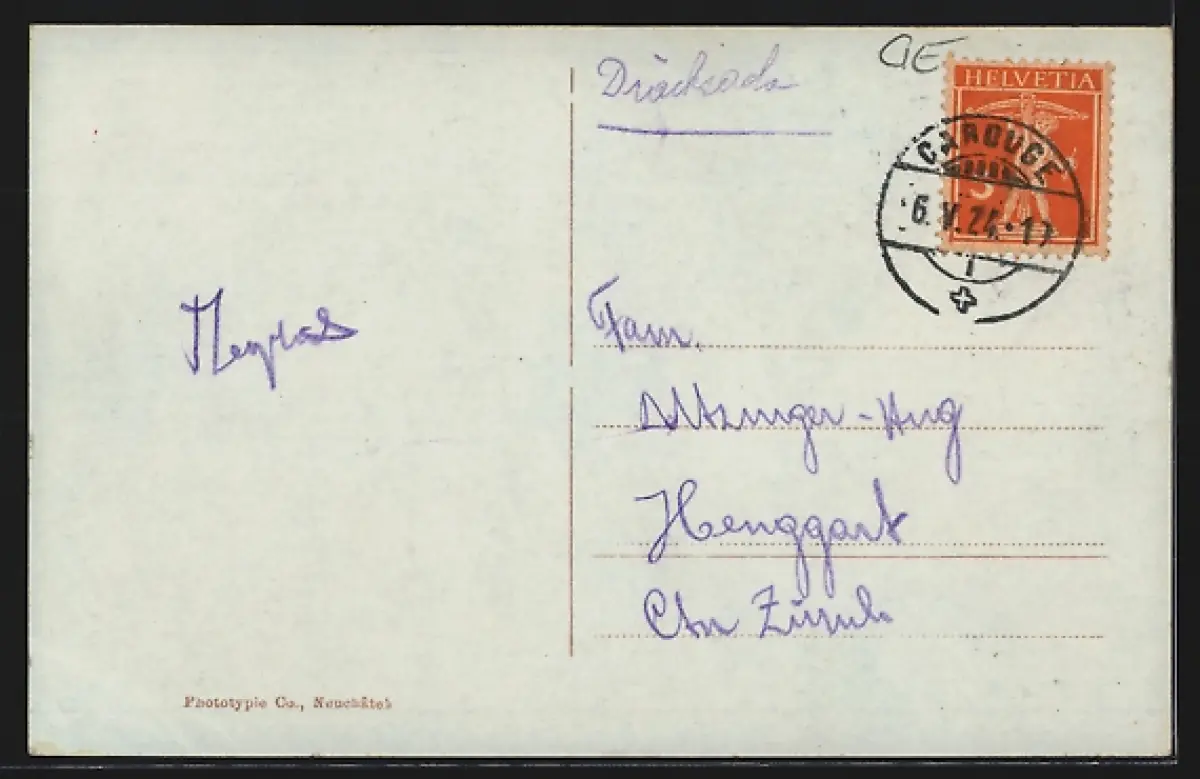 GE
Drucksache
HELVETIA
CAROUGE
5
6.V.24.-17
1
Fam.
Utzinger-Hug
Henggart
Ctn Zürich
Phototypie Co., Neuchâtel